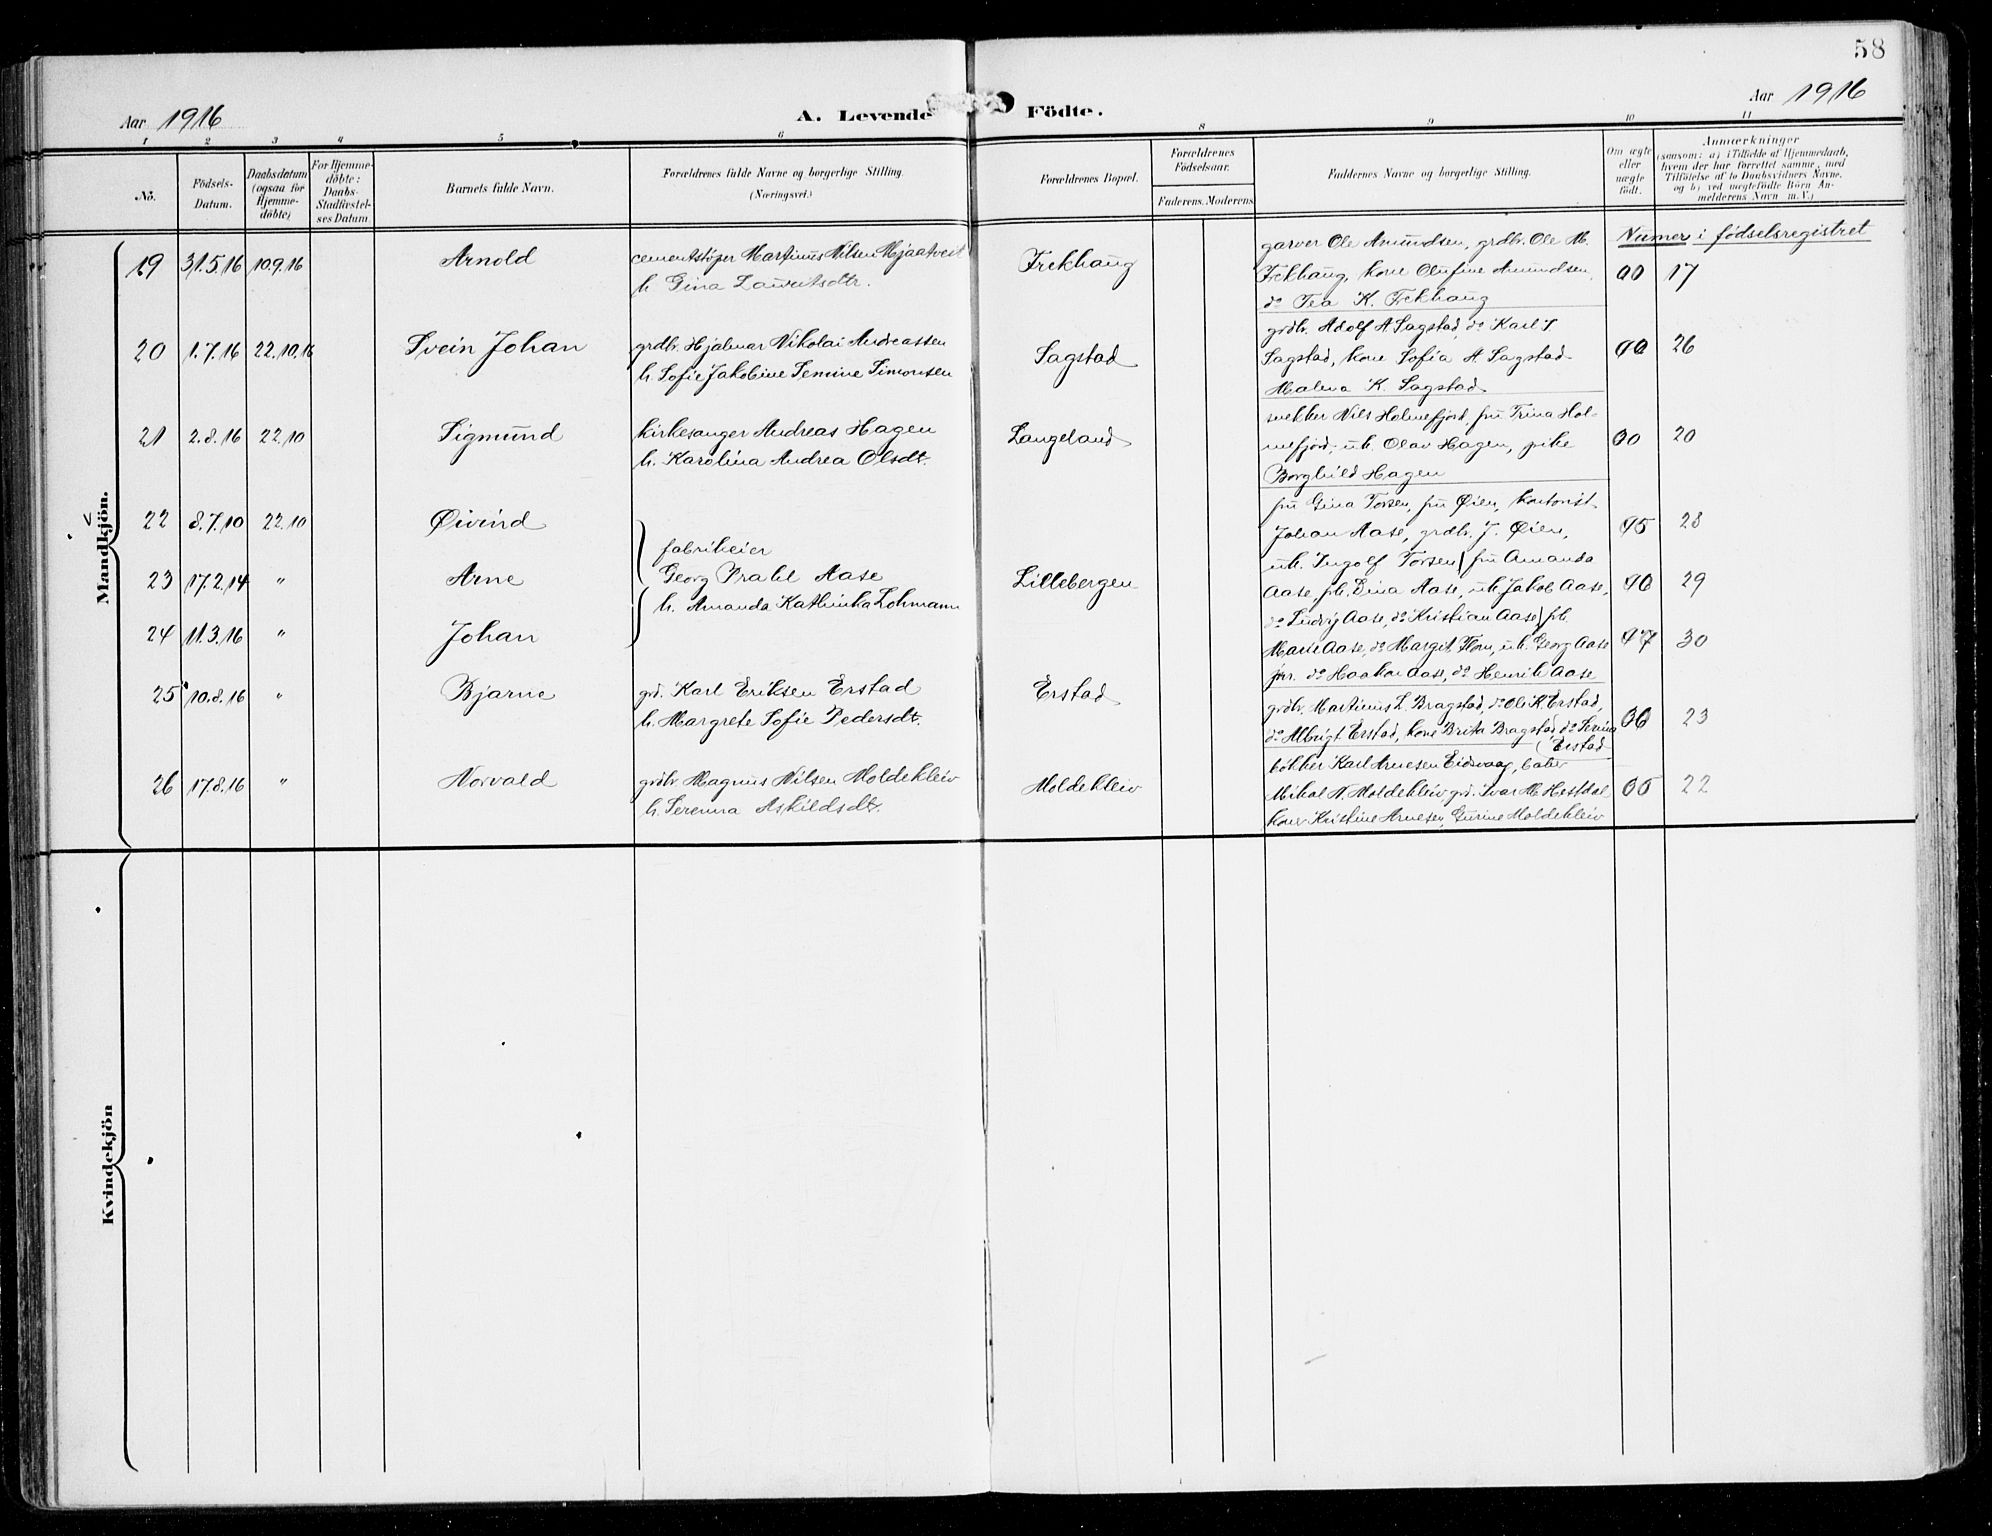 58
Aar 1916
A. Levende Födte.
Aar 1916
1 2 3 4 5 6 8 9 10 11
No.
Födsels-Datum.
Daabsdatum (ogsaa for Hjemmedöbte)
For Hjemmedöbte: Daabs-Stadfæstelses Datum
Barnets fulde Navn.
Forældrenes fulde Navne og borgerlige Stilling.
(Næringsvei.)
Forældrenes Bopæl.
Forældrenes Födselsaar.
Faderens. Moderens.
Faddernes Navne og borgerlige Stilling.
Om ægte eller uægte födt.
Anmærkninger
(saasom: a) i Tilfælde af Hjemmedaab, hvem der har forrettet samme, med Tilföielse af to Daabsvidners Navne, og b) ved uægtefödte Börn Anmelderens Navn m. V.)
Numer i fødselsregistret
Mandkjön.
19 31.5.16 10.9.16 Arnold
cementstøper Martinus Nilsen Mjaatveit
h. Gina Lauritsdtr.
Frekhaug
garver Ole Amundsen, grdbr. Ole M.
Frekhaug, kone Olufine Amundsen,
do Tea K. Frekhaug
17
20 1.7.16 22.10.16 Svein Johan
grdbr. Hjalmar Nikolai Andreassen
h. Sofie Jakobine Semine Simonsen
Sagstad
grdbr. Adolf A. Sagstad, do Karl S
Sagstad, kone Sofia A. Sagstad
Malena K. Sagstad
26
21 2.8.16 22.10 Sigmund
kirkesanger Andreas Hagen
h. Karolina Andrea Olsdt.
Langeland
snekker Nils Holmefjord, fru Trina Hol-
mefjord, uk. Olav Hagen, pike
Borghild Hagen
20
22 8.7.10 22.10 Øivind
23 17.2.14 " Arne
24 11.3.16 " Johan
fabrikeier
Georg Prahl Aase
h. Amanda Kathinka Lohmann
Lillebergen
fru Gina Torsen, fru Øien, kontorist
Johan Aase, grdbr. J. Øien,
uk. Ingolf Torsen) fru Amanda
Aase, pk. Dina Aase, uk. Jakob Aase,
do Ludvig Aase, do Kristian Aase) pk.
Marie Aase, do Margit Flom, uk. Georg Aase
jnr. do Haakon Aase, do Henrik Aase
95 28
29
97 30
25 10.8.16 " Bjarne
grd. Karl Eriksen Erstad
h. Margrete Sofie Pedersdt.
Erstad
grdbr. Martinus L. Bragstad, do Ole K. Erstad,
do Albrigt Erstad, kone Brita Bragstad, do Serina
(Erstad
23
26 17.8.16 " Norvald
grdbr. Magnus Nilsen Moldekleiv
h. Serenna Askildsdt.
Moldekleiv
bøkker Karl Arnesen Eidsvaag,
Mikal N. Moldekleiv grd. Ivar M. Hestdal
kone Kristine Arnesen, Gurine Moldekleiv
22
Kvindekjön